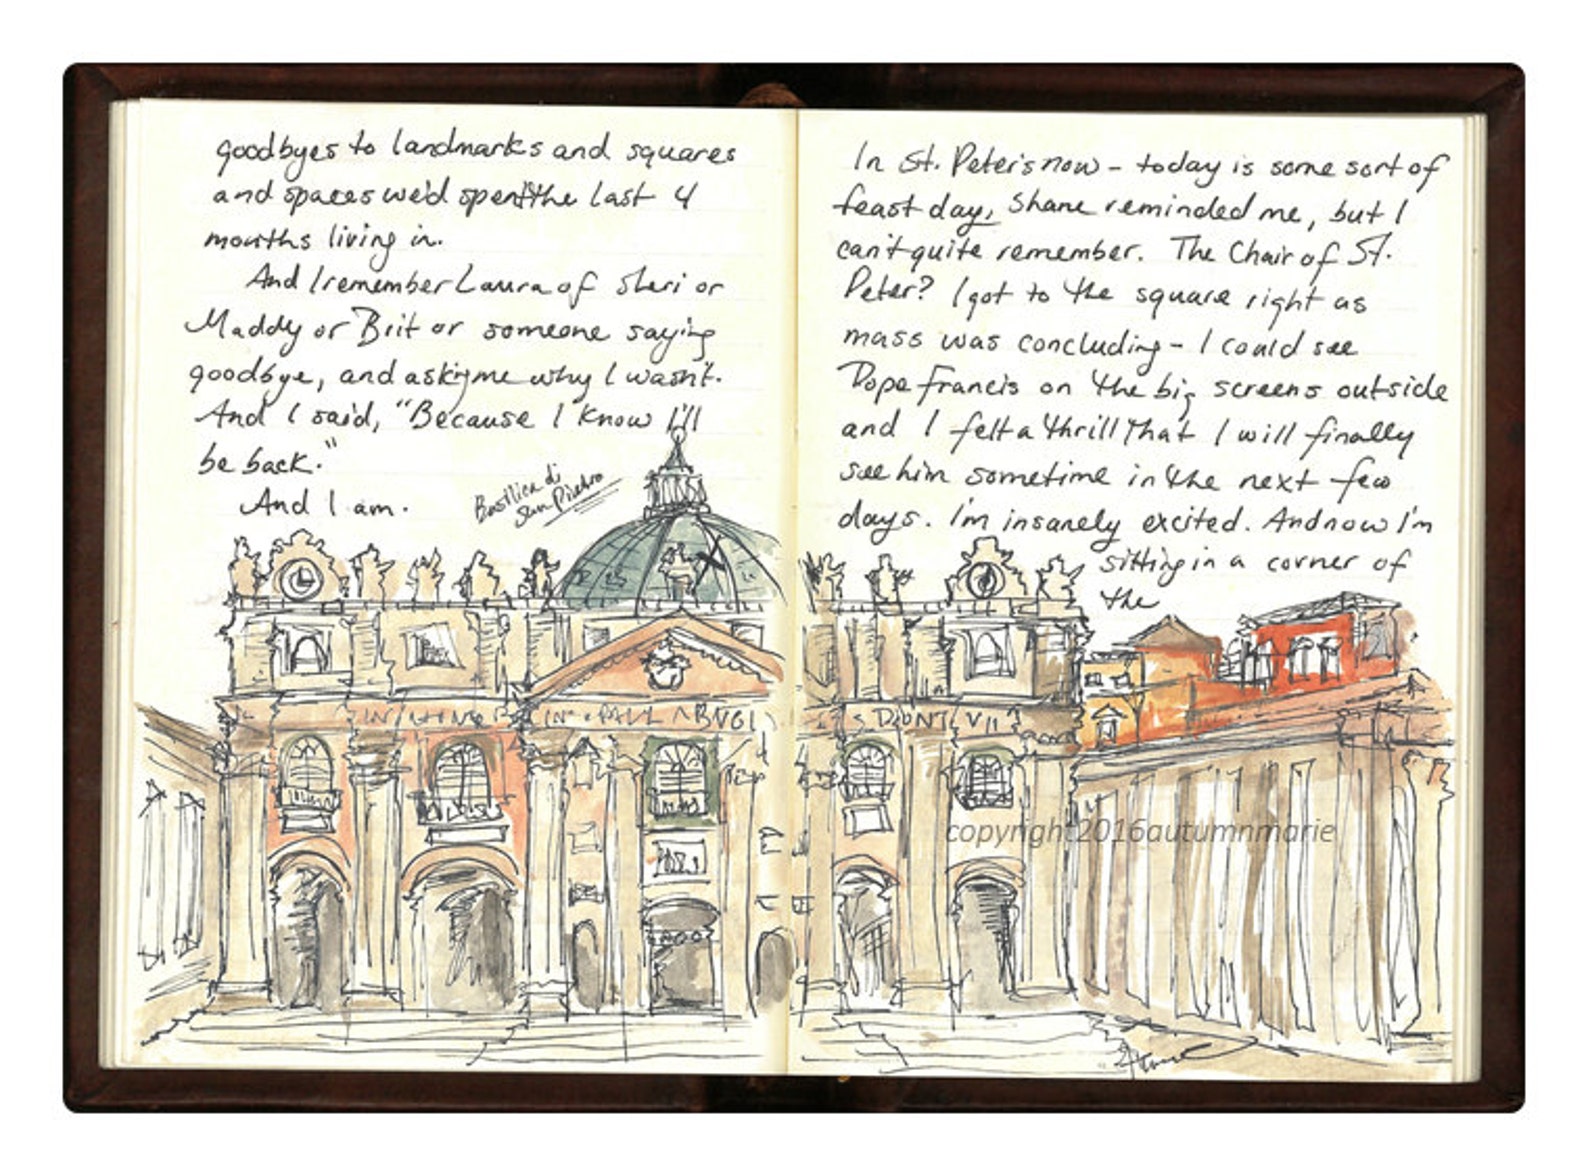 goodbyes to landmarks and squares
and spaces we'd spent the last 4
months living in.
And I remember Laura of Sheri or
Maddy or Brit or someone saying
goodbye, and asking me why I wasn't.
And I said, "Because I know I'll
be back."
And I am.
Basilica di
San Pietro
In St. Peter's now - today is some sort of
feast day, Shane reminded me, but I
can't quite remember. The Chair of St.
Peter? I got to the square right as
mass was concluding - I could see
Pope Francis on the big screens outside
and I felt a thrill that I will finally
see him sometime in the next few
days. I'm insanely excited. And now I'm
sitting in a corner of
the
copyright2016autumnmarie